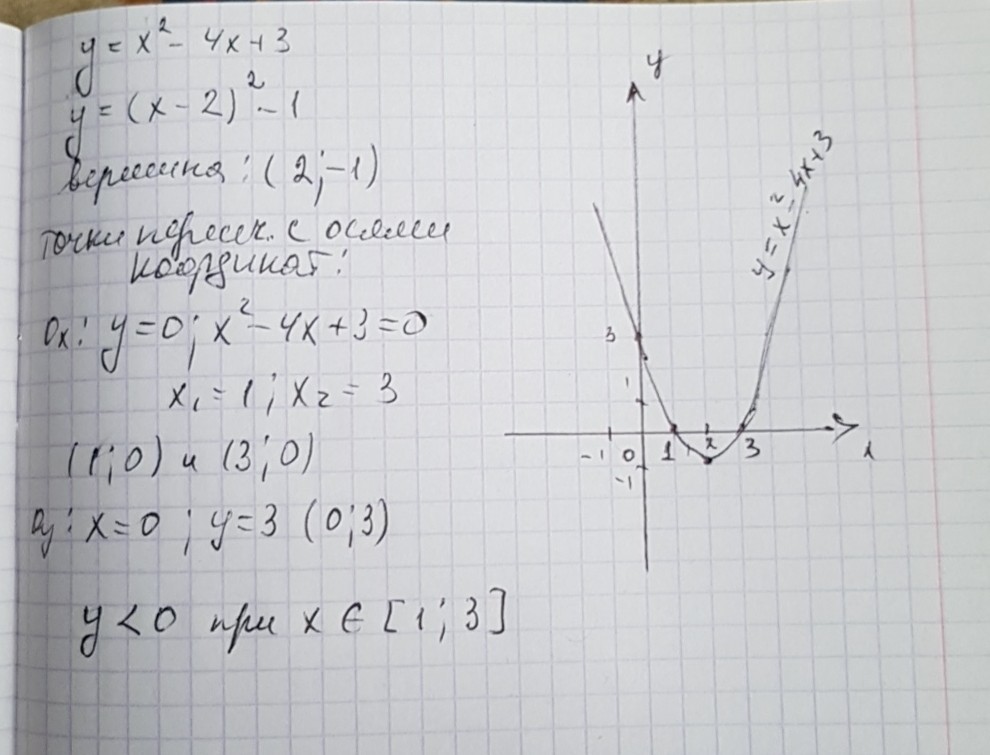 y = x² - 4x + 3
y = (x - 2)² - 1
вершина: (2; -1)
точки пересеч. с осями
координат:
Ox: y = 0; x² - 4x + 3 = 0
x₁ = 1; x₂ = 3
(1; 0) и (3; 0)
Oy: x = 0; y = 3 (0; 3)
y < 0 при x ∈ [1; 3]
y
y = x² - 4x + 3
3
1
-1 0 1 2 3
-1